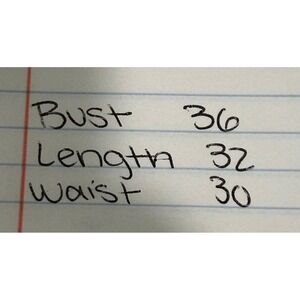 Bust 36
Length 32
Waist 30